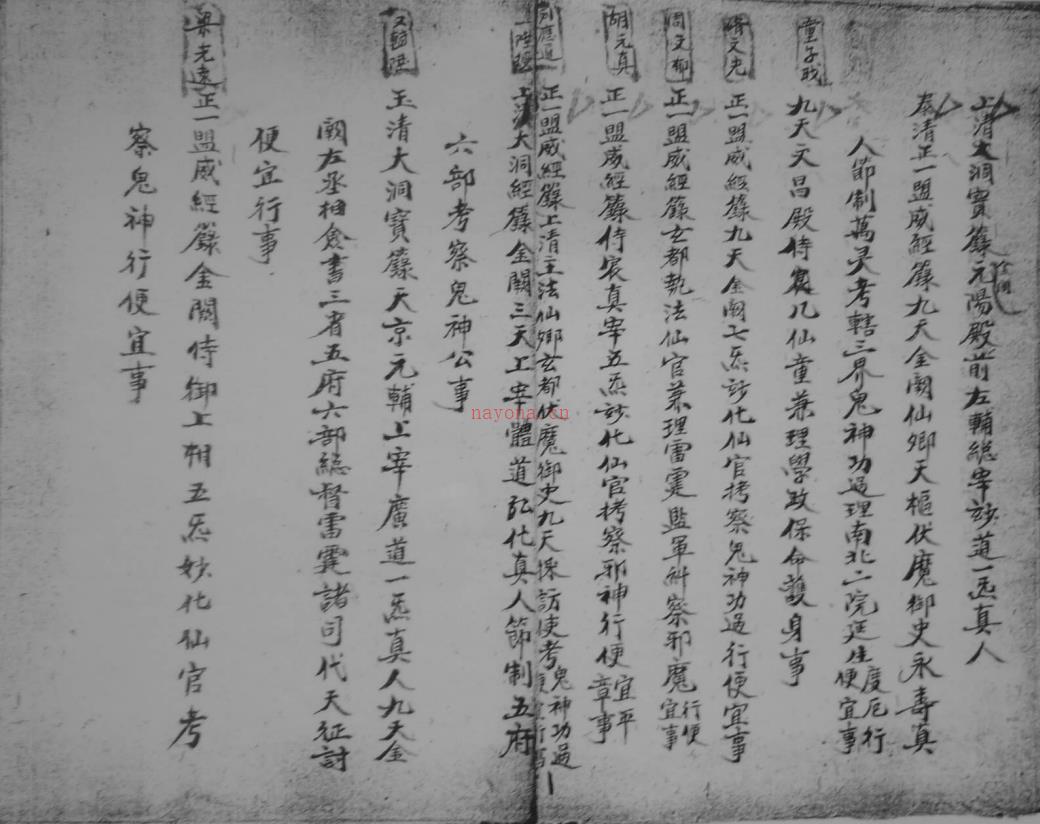 上清大洞寶籙元陽殿前左輔總宰玅道一炁真人
泰清正一盟威經籙九天金闕仙卿天樞伏魔御史永壽真
人節制萬灵考轄三界鬼神功過理南北二院延生度厄行便宜事
童子戝
九天文昌殿侍宸凡仙童兼理學政保命護身事
脩文光
正一盟威經籙九天金闕七炁玅化仙官拷察鬼神功過行便宜事
周文郁
正一盟威經籙玄都執法仙官兼理雷霆監軍糾察邪魔行便宜事
胡元真
正一盟威經籙侍宸真宰五炁玅化仙官拷察邪神行便宜平章事
應
正一盟威經籙上清主法仙鄉玄都伏魔御史九天採訪使考鬼神功過
陸
上清大洞經籙金闕三天上宰體道弘化真人節制五府
六部考察鬼神公事
玉清大洞寶籙天京元輔上宰廣道一炁真人九天金
闕左丞相僉書三省五府六部總督雷霆諸司代天征討
便宜行事
梁光遠
正一盟威經籙金闕侍御上相五炁妙化仙官考
察鬼神行便宜事
nayona.cn